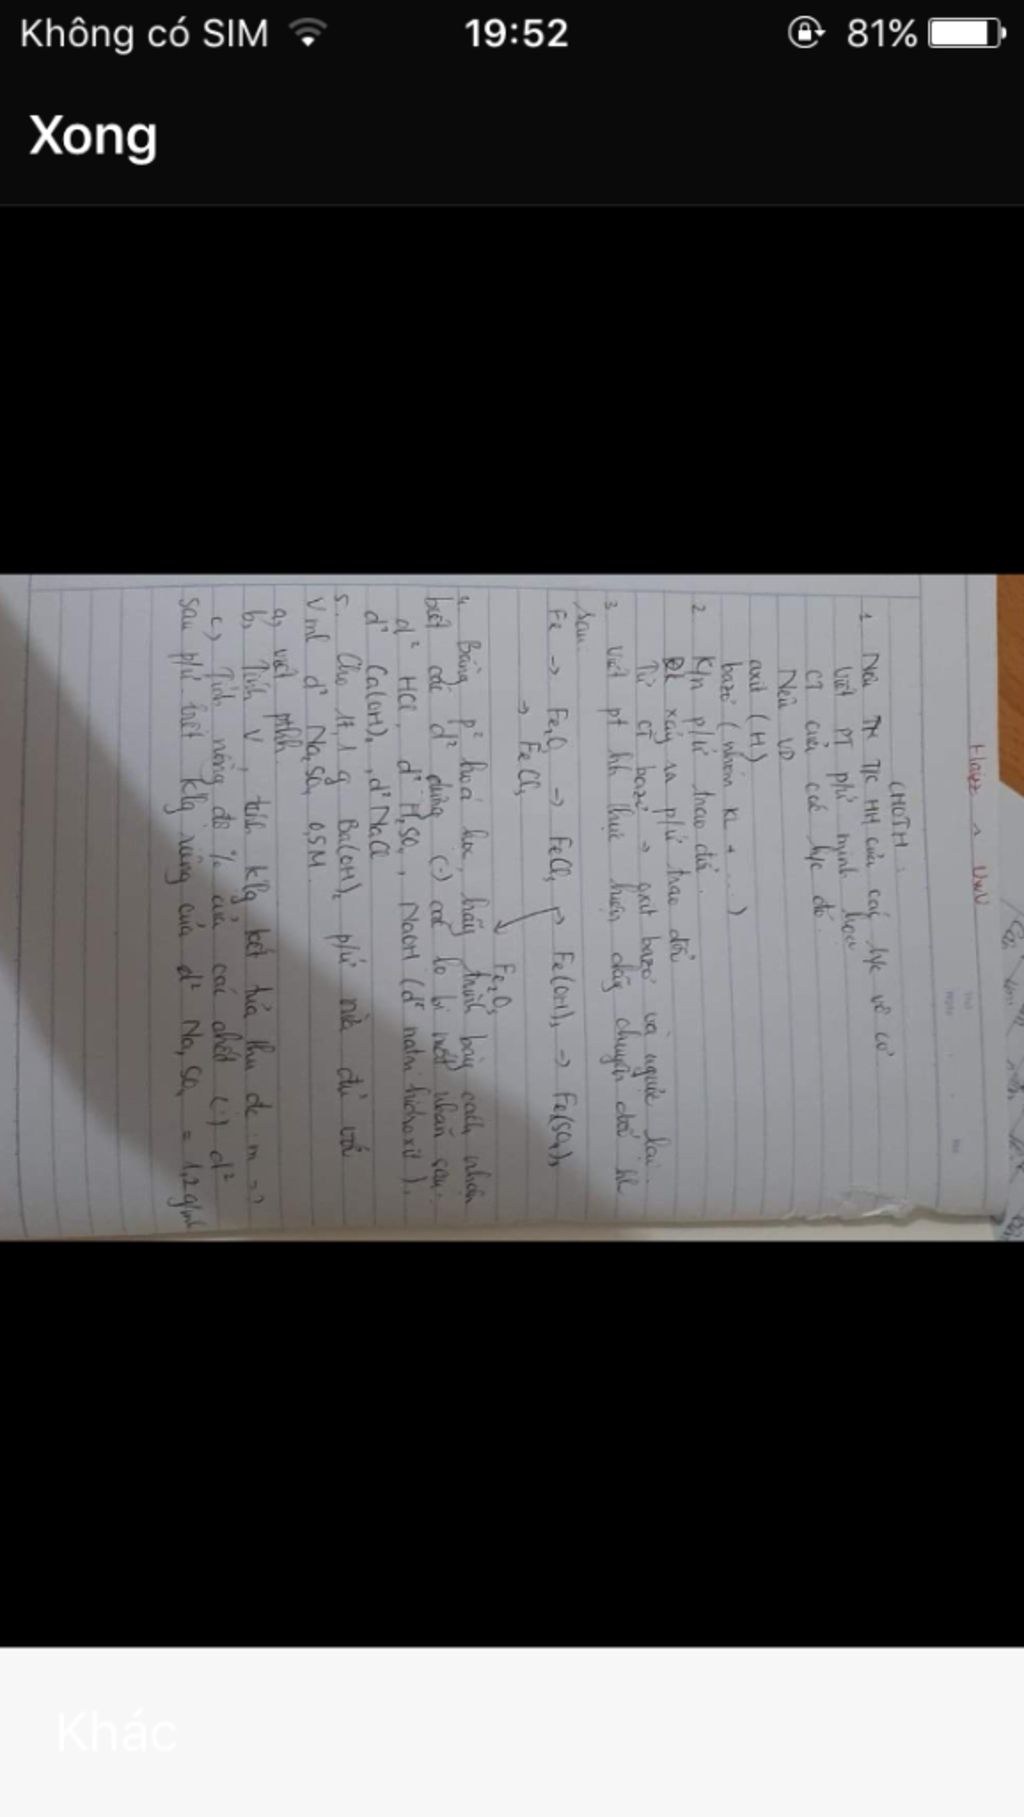 Không có SIM 19:52 81%
Xong
Hayzz ^ UwU
CHOTH:
1. Nêu TK T/c HH của các h/c vô cơ
Viết PT p/ứ minh họa
CT của các h/c đó.
Nêu VD
axit (H)
bazơ (nhóm KL + ...)
2. K/n p/ứ trao đổi.
ĐK xảy ra p/ứ trao đổi
Từ CT bazơ → oxit bazơ và ngược lại
3. Viết pt hh thực hiện dãy chuyển đổi hh
sau:
Fe₂O₃
Fe → Fe₃O₄ → FeCl₃ → Fe(OH)₃ → Fe₂(SO₄)₃
→ FeCl₂
4. Bằng p² hoá học, hãy trình bày cách nhận
biết các d² đựng (-) các lọ bị mất nhãn sau:
d² HCl, d² H₂SO₄, NaOH (d² natri hidroxit),
d² Ca(OH)₂, d² NaCl
5. Cho 17,1 g Ba(OH)₂ p/ứ vừa đủ với
V ml d² Na₂SO₄ 0,5M.
a, viết pthh.
b, Tính V, tính klg kết tủa thu đc m = ?
c, Tính nồng độ % của các chất (-) d²
sau p/ứ biết klg riêng của d² Na₂SO₄ = 1,2g/ml
Khác